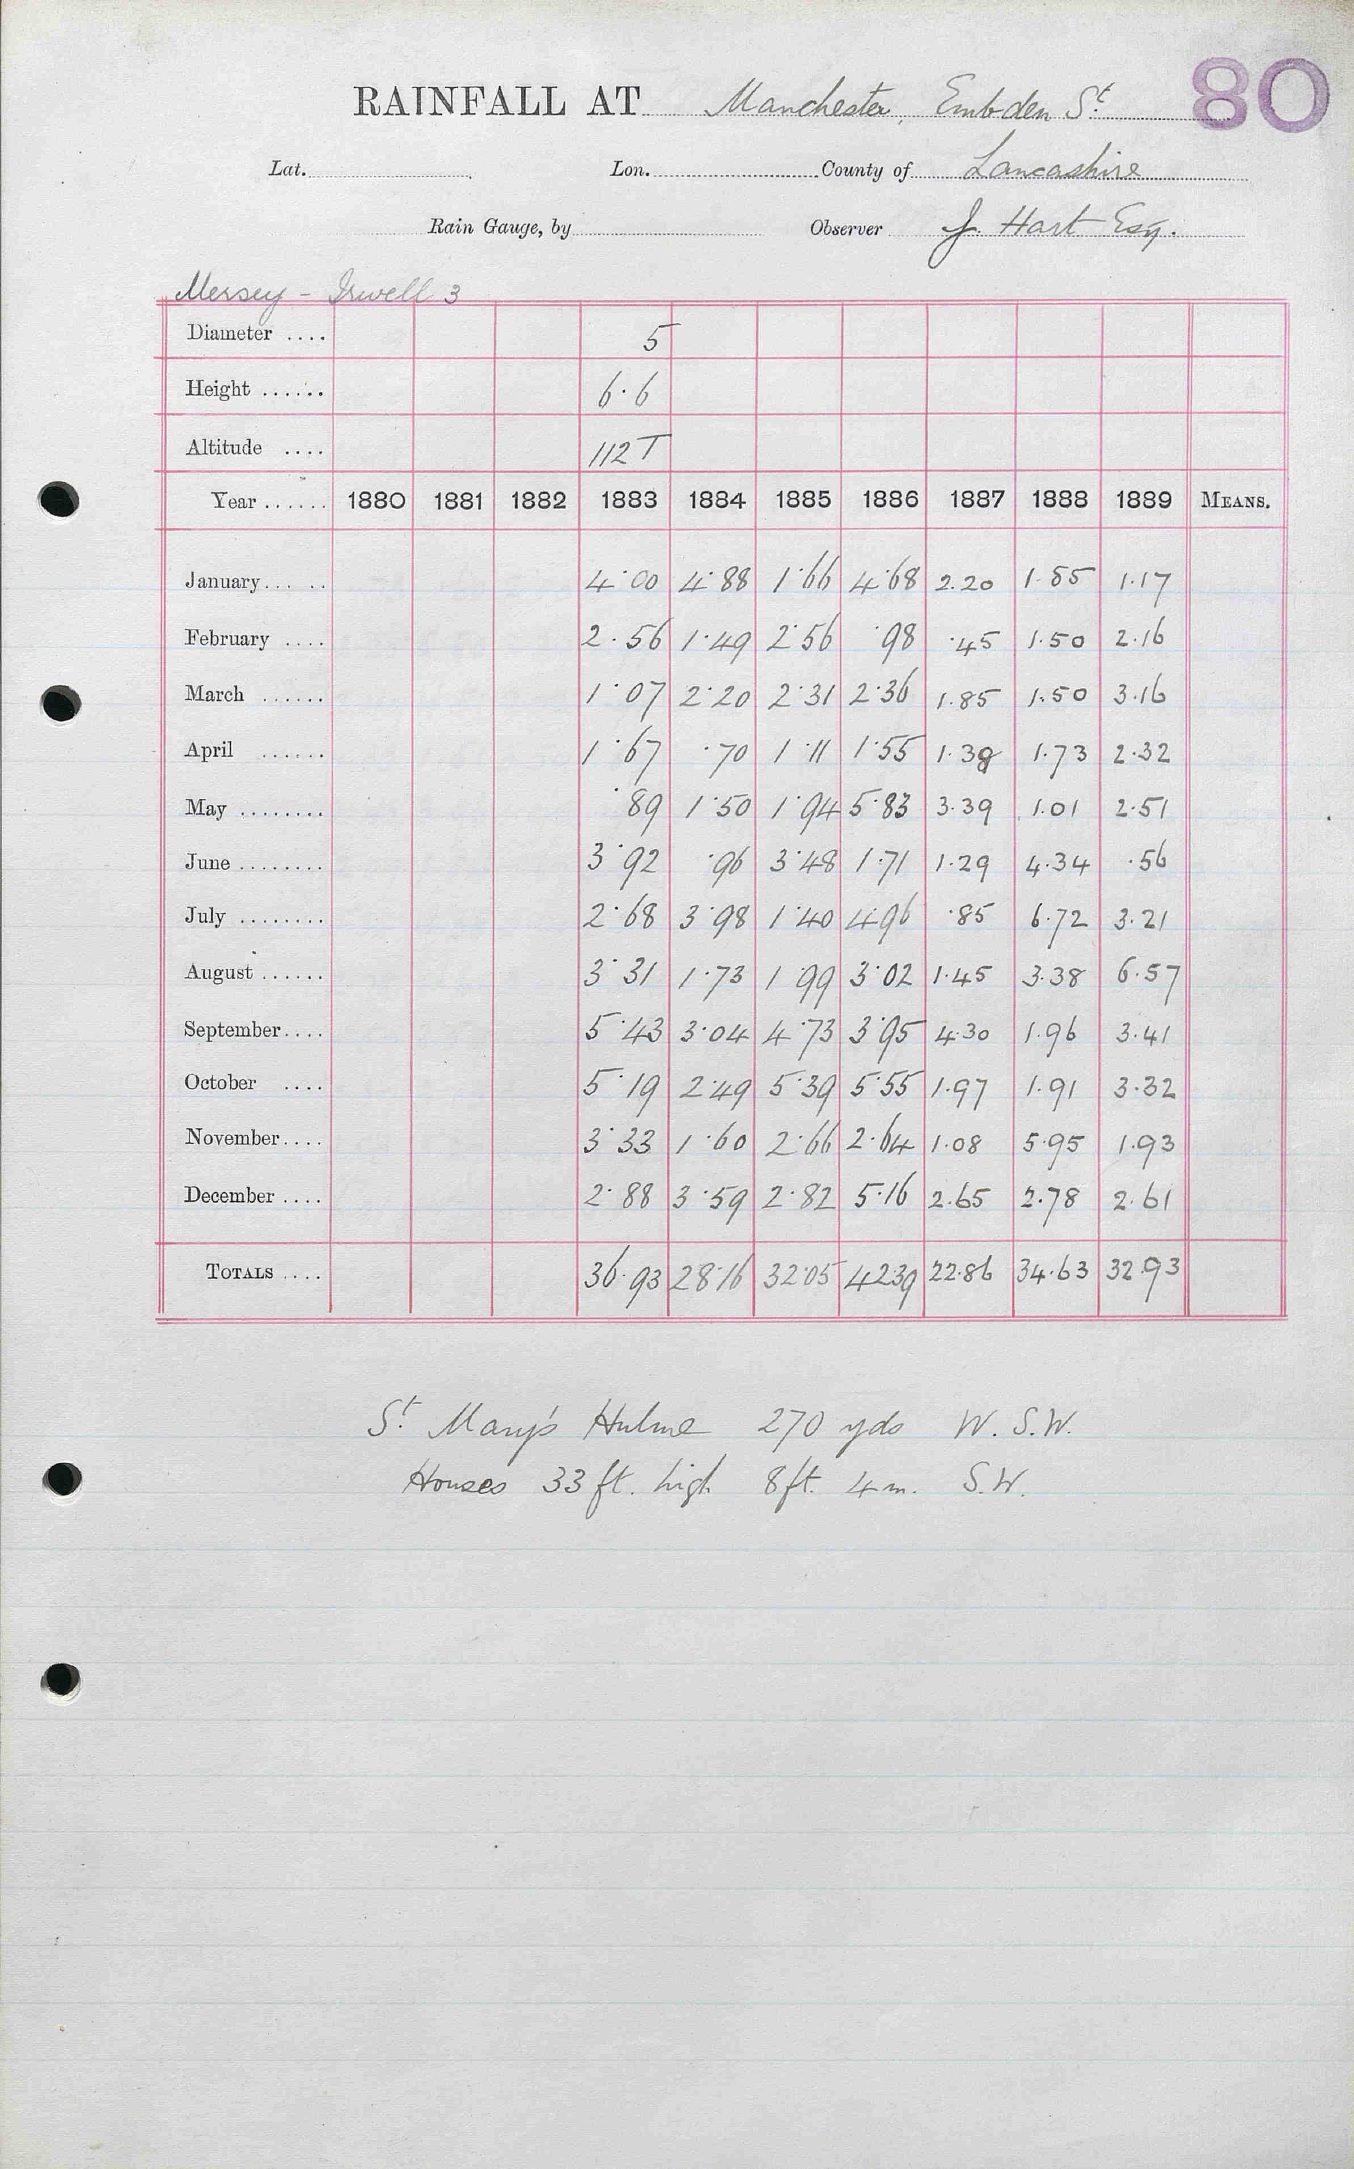 80
RAINFALL AT Manchester, Embden St
Lat. Lon. County of Lancashire
Rain Gauge, by Observer J. Hart Esq.
Mersey - Irwell 3
Diameter .... 5
Height ...... 6·6
Altitude .... 112 T
Year ...... 1880 1881 1882 1883 1884 1885 1886 1887 1888 1889 MEANS.
January ..... 4·00 4·88 1·66 4·68 2.20 1.85 1.17
February .... 2·56 1·49 2·56 ·98 ·45 1.50 2.16
March ...... 1·07 2·20 2·31 2·36 1.85 1.50 3.16
April ...... 1·67 ·70 1·11 1·55 1.38 1.73 2.32
May ........ ·89 1·50 1·94 5·83 3.39 1.01 2.51
June ........ 3·92 ·96 3·48 1·71 1.29 4.34 ·56
July ........ 2·68 3·98 1·40 4·96 ·85 6.72 3.21
August ...... 3·31 1·73 1·99 3·02 1.45 3.38 6.57
September .... 5·43 3·04 4·73 3·95 4.30 1.96 3.41
October .... 5·19 2·49 5·39 5·55 1.97 1.91 3.32
November .... 3·33 1·60 2·66 2·64 1.08 5.95 1.93
December .... 2·88 3·59 2·82 5·16 2.65 2.78 2.61
TOTALS .... 36·93 28·16 32·05 42·39 22.86 34.63 32.93
St Mary's Hulme 270 yds W. S.W.
Houses 33 ft. high 8 ft. 4 m. S.W.